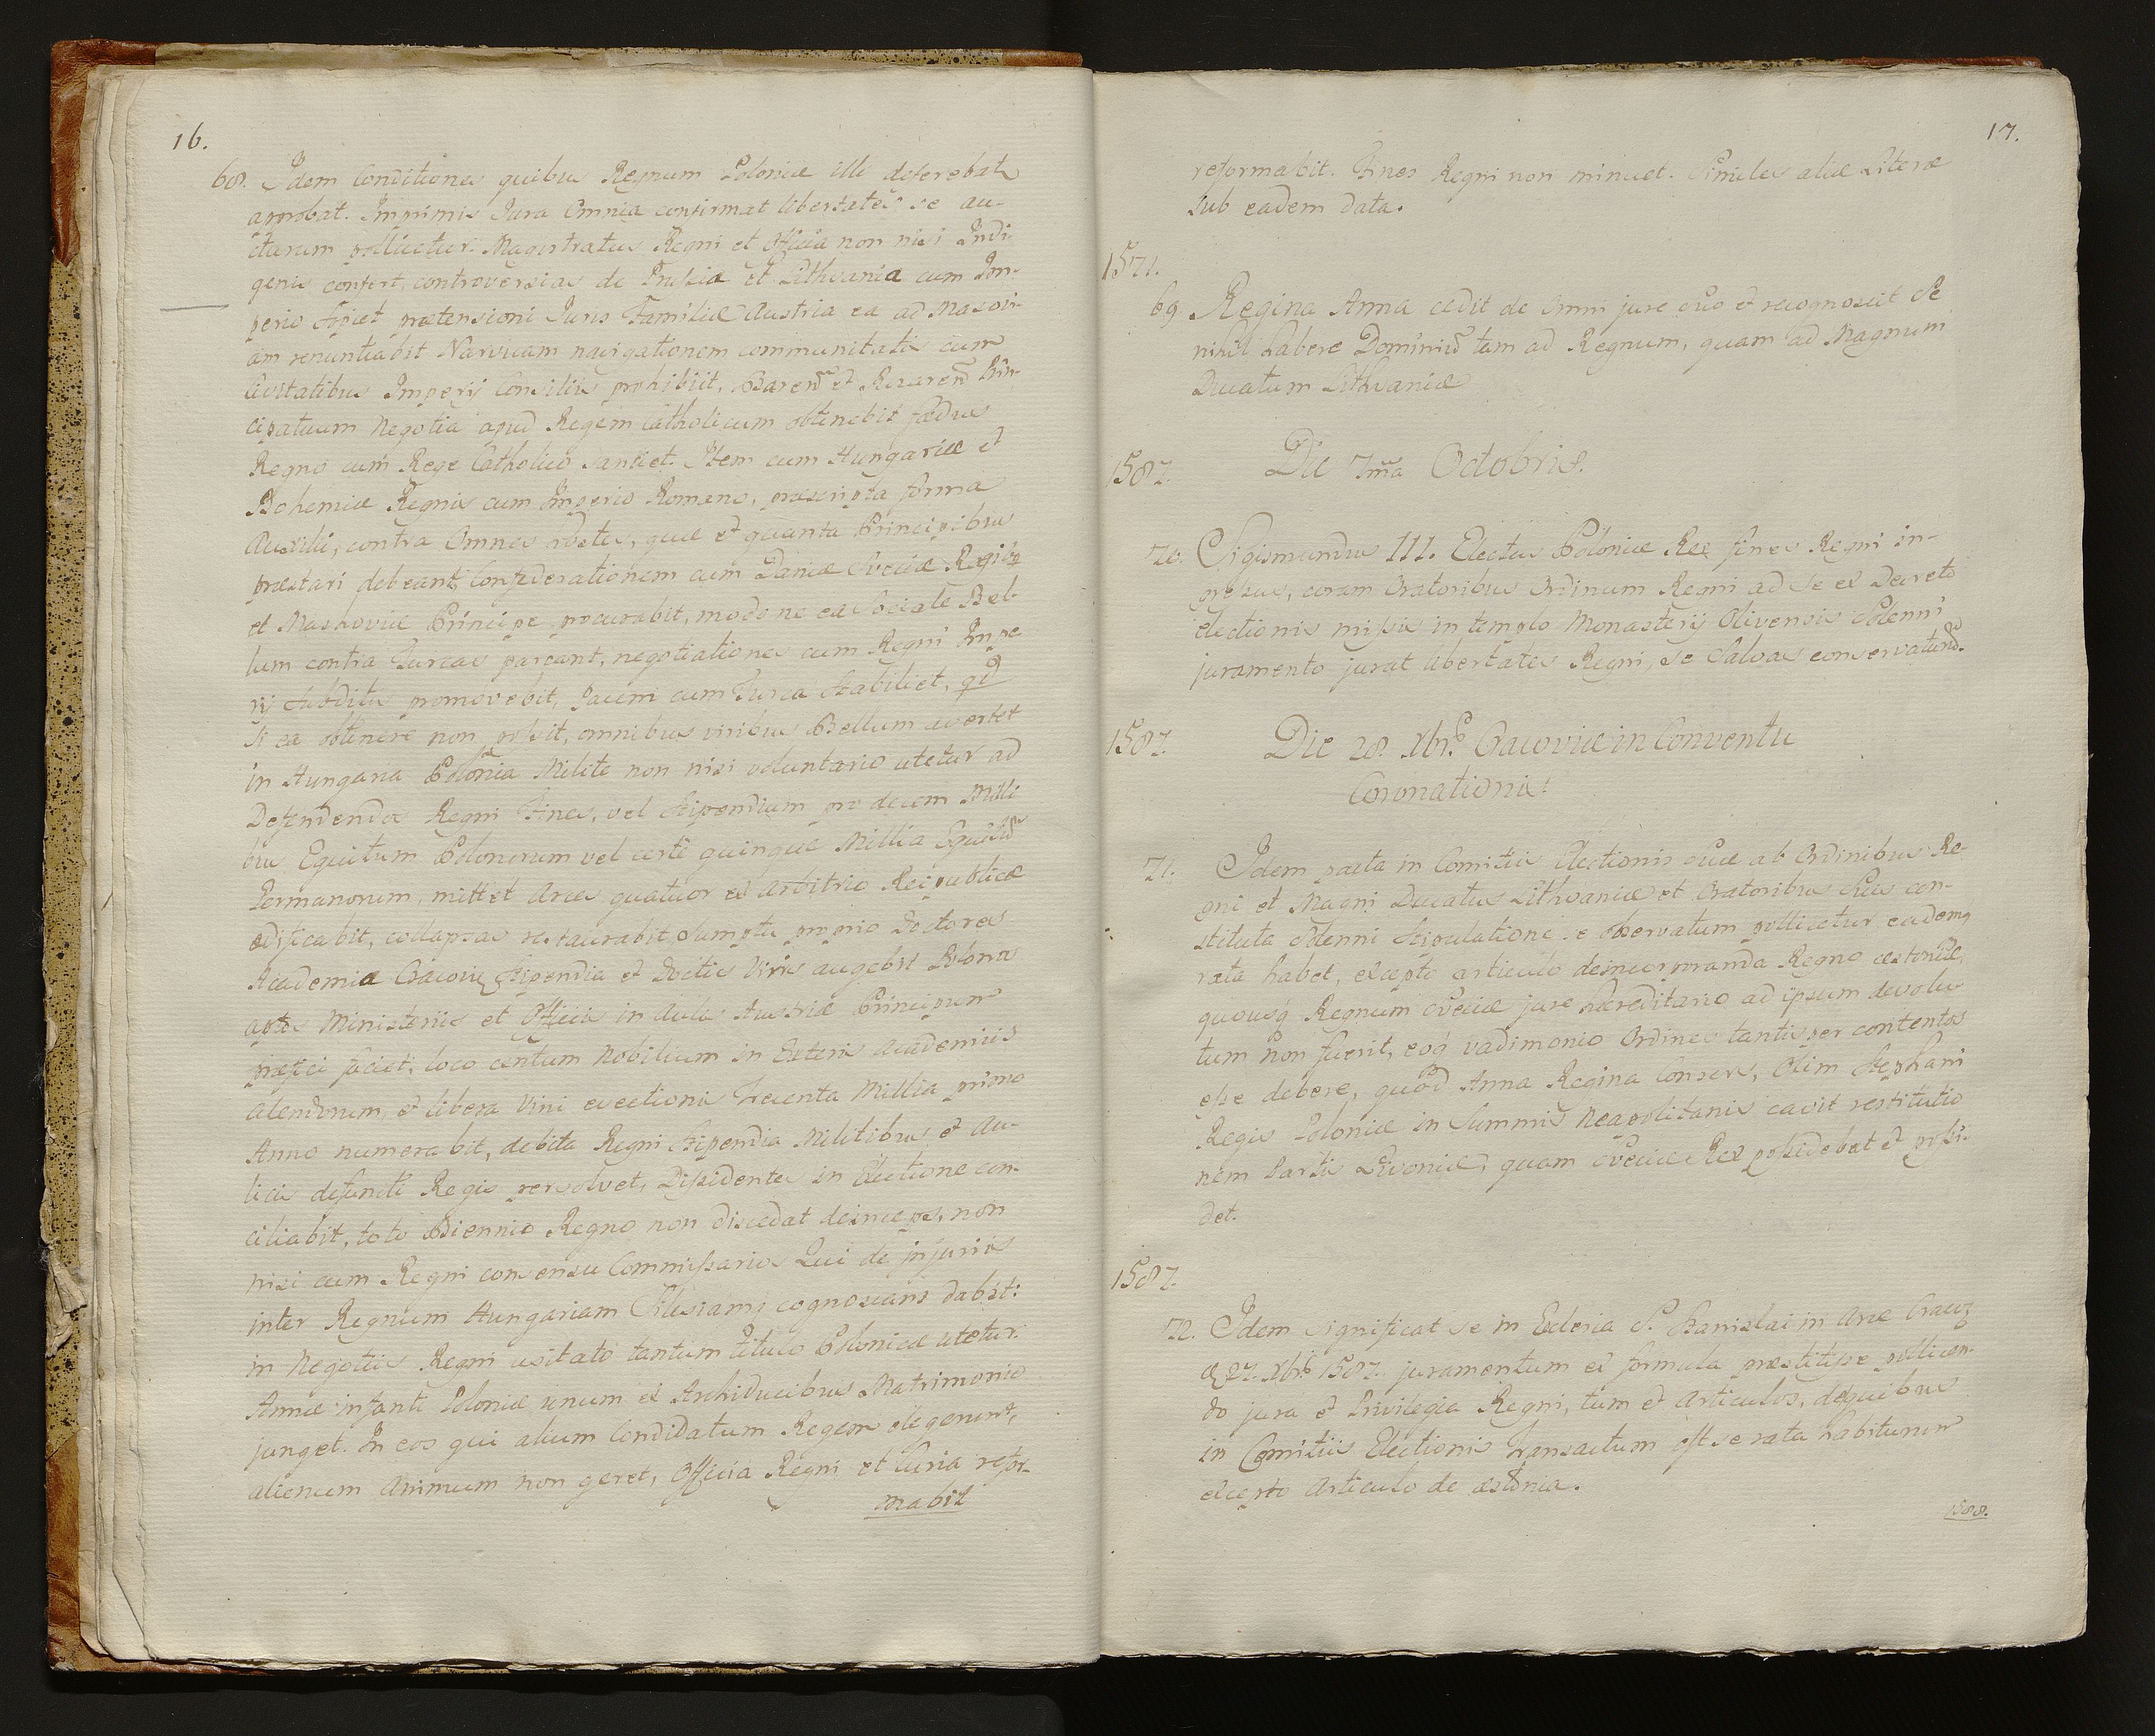 16.
68. Idem Conditiones quibus Regnum Poloniæ illi deferebat
aprobat. Imprimis Jura Omnia confirmat libertates se au-
cturum pollicetur. Magistratus Regni et Officia non nisi Indi-
genis confert, controversias de Prussia et Lithvania cum Im-
perio sopiet prætensioni Juris Familiæ Austria ea ad Masovi-
am renuntiabit Narvicam navigationem communitatis cum
Civitatibus Imperij Consiliis prohibiit, Baren̄ et Rosaren̄ Prin-
cipatuum Negotia apud Regem Catholicum obtinebit fædus
Regno cum Rege Catholico sanciet. Item cum Hungariæ et
Bohemiæ Regnis cum Imperio Romano, præscripta forma
Auxilii, contra Omnes Hostes, quæ et quanta Principibus
præstari debeant, Confæderationem cum Daniæ Sveciæ Regib9
et Moshoviæ Principe procurabit, modo ne ea Sociale Bel-
lum contra Turcas pareant, negotiationes cum Regni Impe-
rij subditis promovebit, Pacem cum Turca stabiliet, qd
si ea obtinere non possit, omnibus viribus Bellum avertet
in Hungaria Polonia Milite non nisi voluntario utetur ad
Defendendos Regni Fines, vel stipendium pro decem Milli
bus Equitum Polonorum vel certe quinque Millia Equitū
Germanorum, mittet Arces quatuor ex arbitrio Reipublicæ
ædificabit, collapsas restaurabit, sumptu proprio Doctores
Academiæ Cracovi stipendia et doctis viris augebit Polonos
aptos Ministeriis et Officiis in Aula Austriæ Principum
præfici faciet, loco centum Nobilium in Exteris Academiis
alendorum, et libera Vini evectionis Trecenta Millia primo
Anno numerabit, debita Regni stipendia Militibus et Au-
licis defuncti Regis persolvet, Dissidentes in Electione con-
ciliabit, toto Biennio Regno non discedat deinceps, non
nisi cum Regni consensu Commissarios Qui de injuriis
inter Regnum Hungariam Silesiam cognoscant dabit:
in Negotiis Regni usitato tantum titulo Poloniæ utetur.
Annæ infanti Poloniæ unum ex Archiducibus Matrimonio
junget. In eos qui alium Condidatum Regem elegerunt,
alienum Animum non geret, Officia Regni et Curia refor-
mabit
17.
reformabit. Fines Regni non minuet. Similes aliæ Literæ
sub eadem data.
1571.
69 Regina Anna cedit de omni jure suo et recognoscit se
nihil habere Dominiū tam ad Regnum, quam ad Magnum
Ducatum Lithvaniæ
1587. Die 7ma Octobris.
70. Sigismundus III. Electus Poloniæ Rex fines Regni in-
gressus, coram Oratoribus Ordinum Regni ad se ex Decreto
electionis missis in templo Monasterij Olivensis Solenni
juramento jurat libertates Regni, se salvas conservatur̄.
1587. Die 28. Xbris Cracoviæ in Conventu
Coronationis.
71. Idem pacta in Comitiis Electionis suæ ab Ordinibus Re-
gni et Magni Ducatus Lithvaniæ et Oratoribus suis con-
stituta solenni stipulatione se observatum pollicetur eademq
rata habet, excepto articulo deincorporanda Regno æstoniæ,
quousq Regnum Sveciæ jure hæreditario ad ipsum devolu
tum non fuerit, eoq vadimonio Ordines tantisper contentos
esse debere, quod Anna Regina Consors, Olim Stephani
Regis Poloniæ in Summis Neapolitanis cavit restitutio
nem Partis Livoniæ, quam Sveciæ Rex possidebat et possi-
det.
1587.
72. Idem significat se in Eclesia S. Stanislai in Arce Cracov
27. Xbris 1587. juramentum ex formula præstitisse pollicen-
do jura et Privilegia Regni, tum et articulos, de quibus
in Comitiis Electionis transactum est se rata habiturum
excepto Articulo de æstonia.
1588.